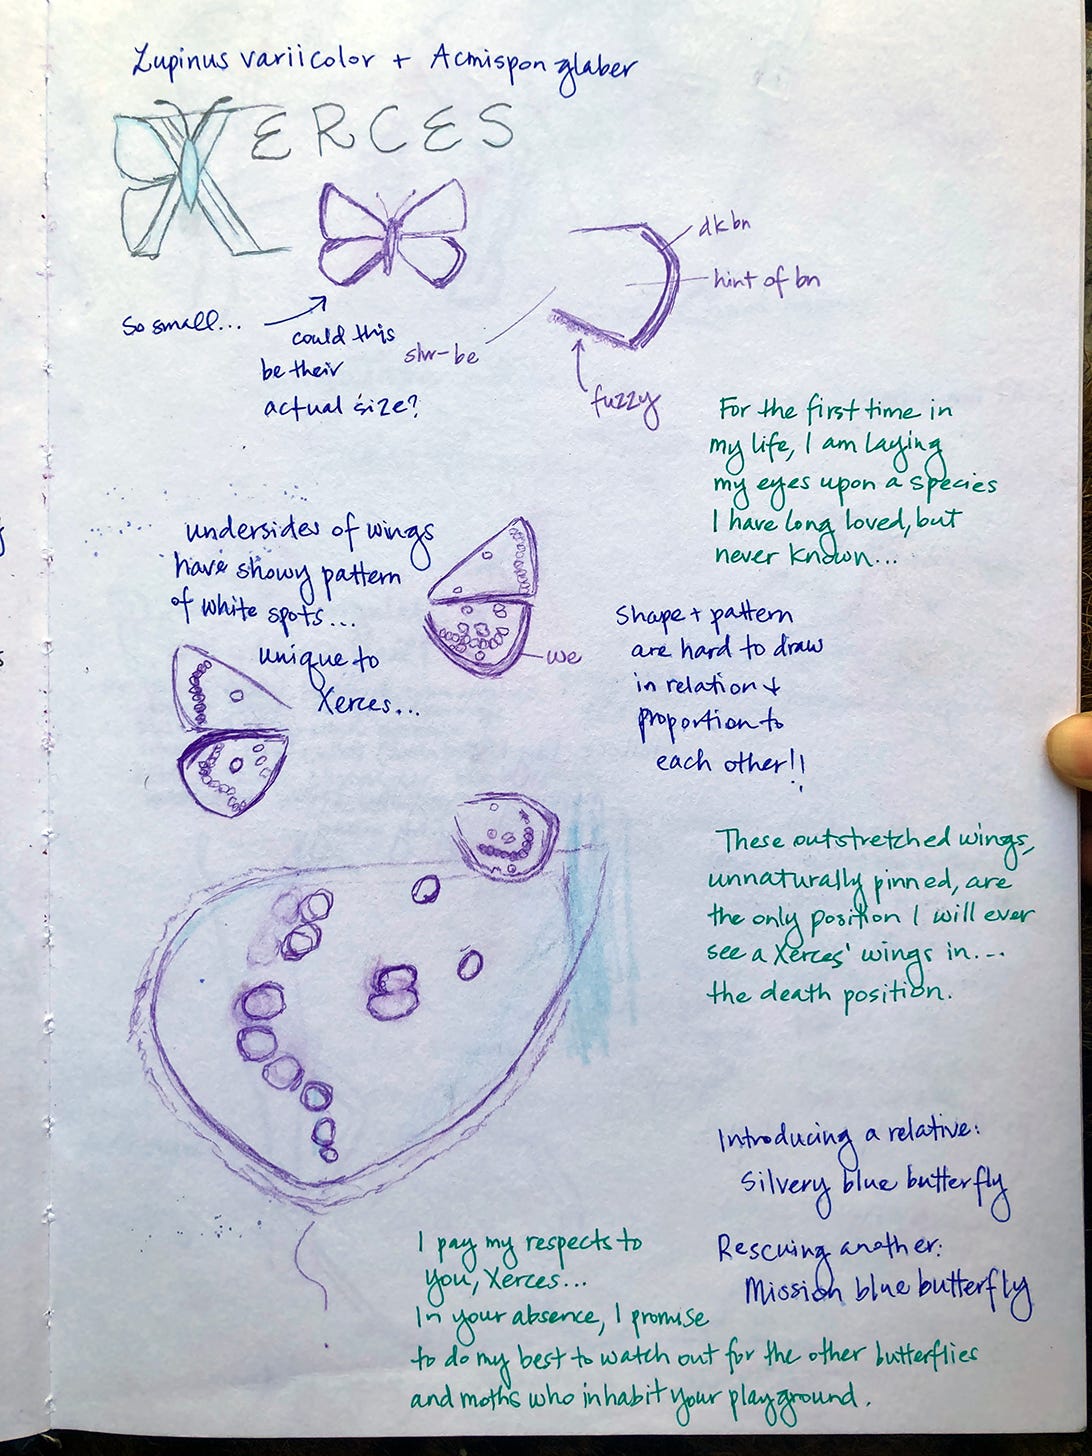 Lupinus variicolor + Acmispon glaber
XERCES
dk bn
hint of bn
slvr-be
fuzzy
So small...
could this
be their
actual size?
For the first time in
my life, I am laying
my eyes upon a species
I have long loved, but
never known...
undersides of wings
have showy pattern
of white spots...
unique to
Xerces...
we
Shape + pattern
are hard to draw
in relation +
proportion to
each other!!
These outstretched wings,
unnaturally pinned, are
the only position I will ever
see a Xerces' wings in...
the death position.
Introducing a relative:
Silvery blue butterfly
Rescuing another:
Mission blue butterfly
I pay my respects to
you, Xerces...
In your absence, I promise
to do my best to watch out for the other butterflies
and moths who inhabit your playground.